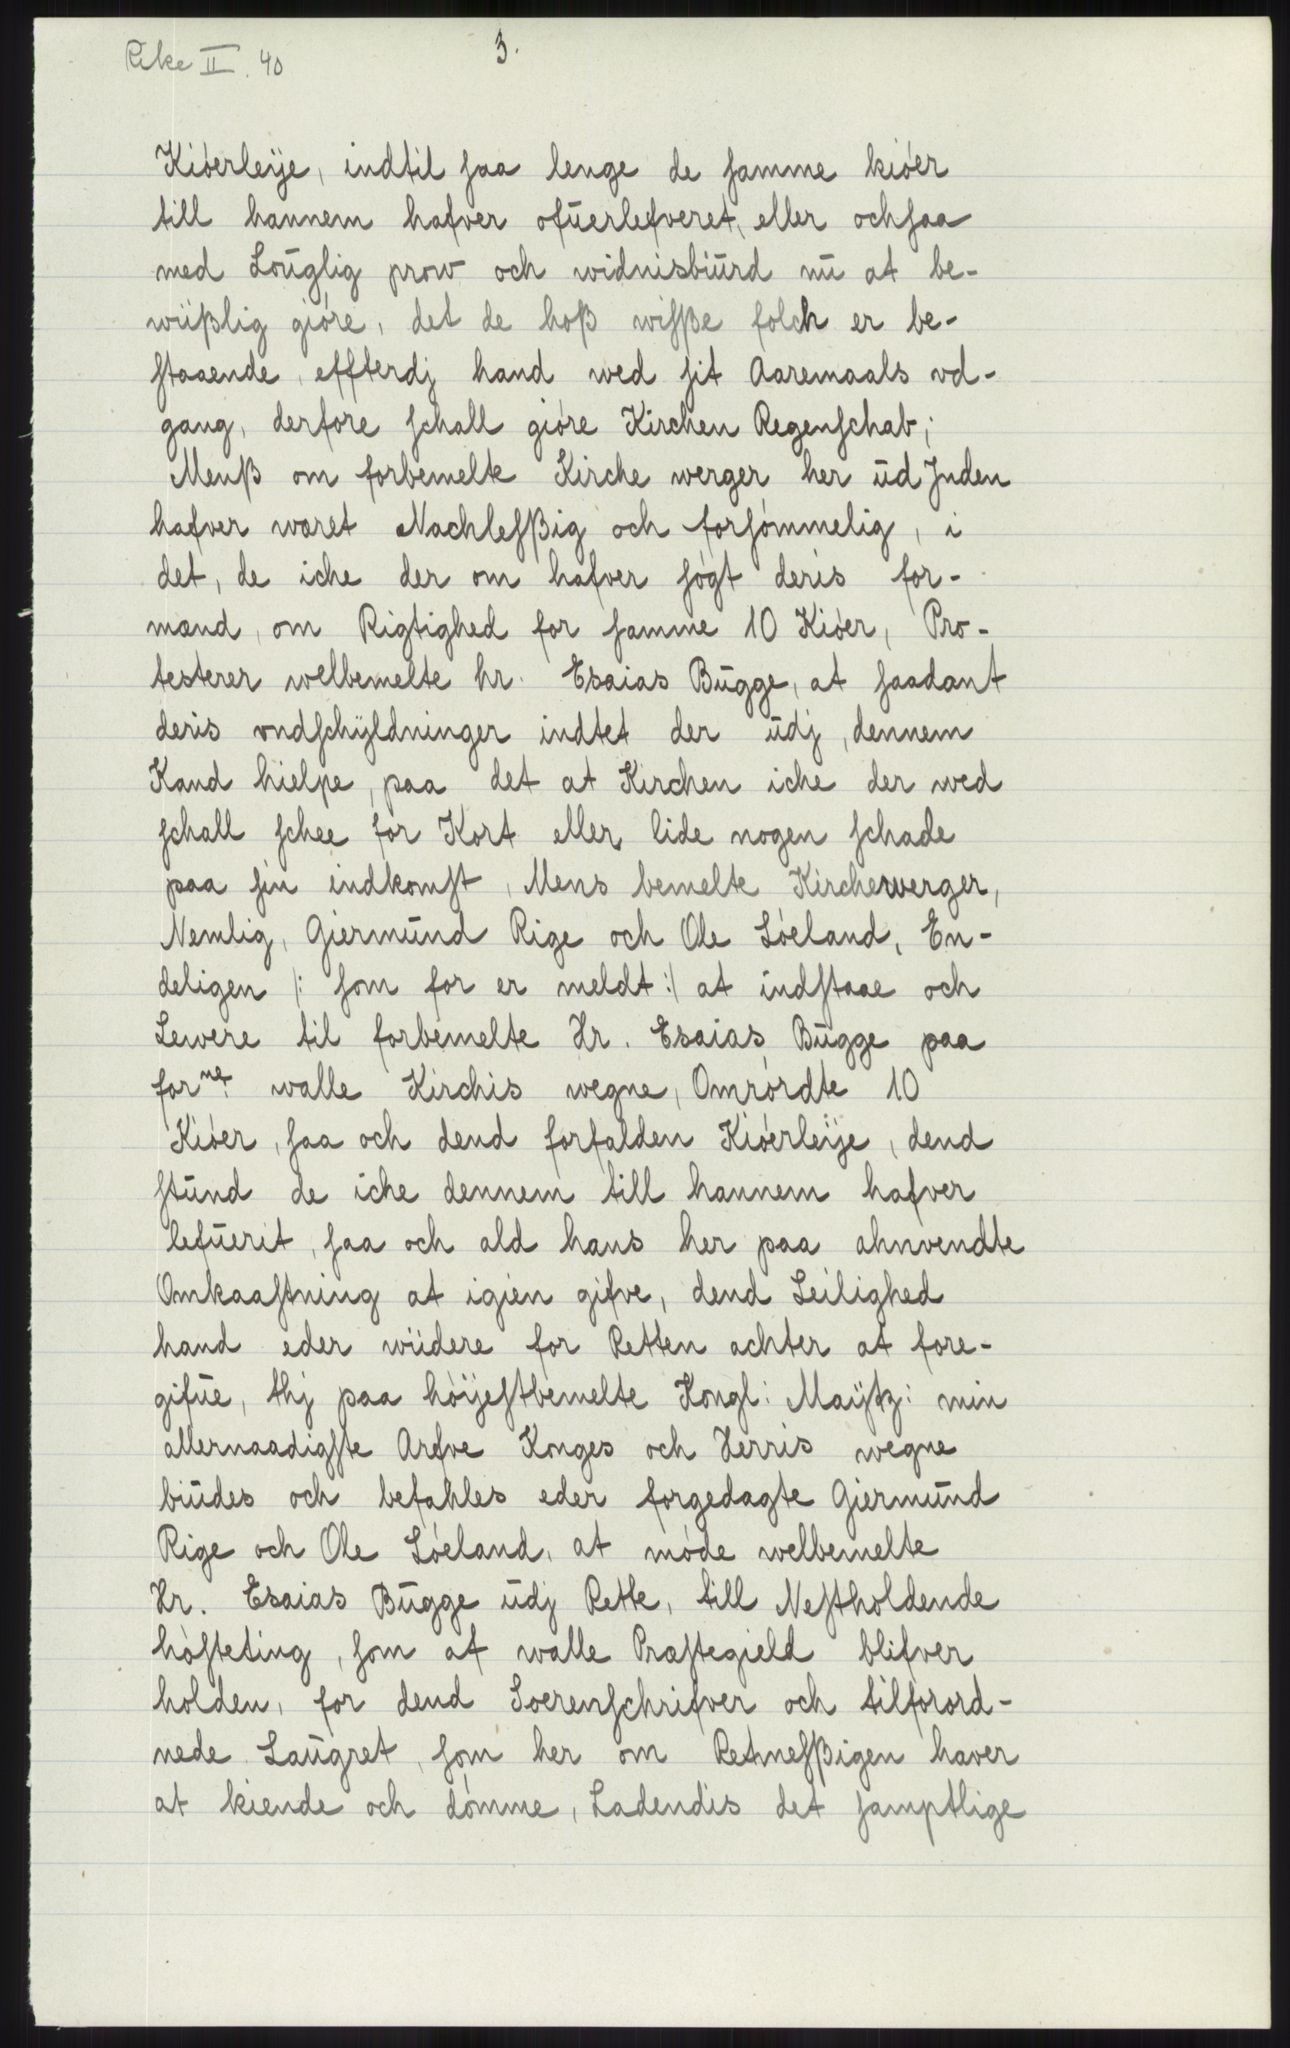 Rike II. 40
3.
Kiöerleÿe, indtil saa lenge de samme kiöer
till hannem hafver ofuerlefveret, eller ochsaa
med Louglig prow och widnisbiurd nu at be-
wüßlig giöre, det de hoß wisße folch er be-
staaende, effterdj hand wed sit Aaremaals vd-
gang, derfore schall giöre Kirchen Regenschab;
Menß om forbemelte Kirche werger her ud Inden
hafver wæret Nachlesßig och forsömmelig, i
det, de iche der om hafver sögt deris for-
mænd, om Rigtighed for samme 10 Kiöer, Pro-
testerer welbemelte hr. Esaias Bugge, at saadant
deris vndschÿldninger indtet der udj, dennem
Kand hielpe, paa det at Kirchen iche der wed
schall schee for Kort eller lide nogen schade
paa sin indkomst, Mens bemelte Kircherwerger,
Nemlig, Giermund Rige och Ole Löeland, En-
deligen /: som for er meldt :/ at indstaae och
Lewere til forbemelte Hr. Esaias Bugge paa
for^ne walle Kirchis wegne, Omrördte 10
Kiöer, saa och dend forfalden Kiöerleÿe, dend
stund de iche dennem till hannem hafver
lefuerit, saa och ald hans her paa ahnvendte
Omkaastning at igien gifve, dend Leilighed
hand eder wüdere for Retten achter at fore-
gifue, thj paa höÿestbemelte Kongl: Maÿtz: min
allernaadigste Arfve Konges och Herris wegne
biudes och befahles eder forgedagte Giermund
Rige och Ole Löeland, at möde welbemelte
Hr. Esaias Bugge udj Rette, till Nestholdende
hösteting, som af walle Præstegield blifver
holden, for dend Soerenschrifver och tilforord-
nede Laugret, som her om Retmesßigen haver
at kiende och dömme, Ladendis det samptlige